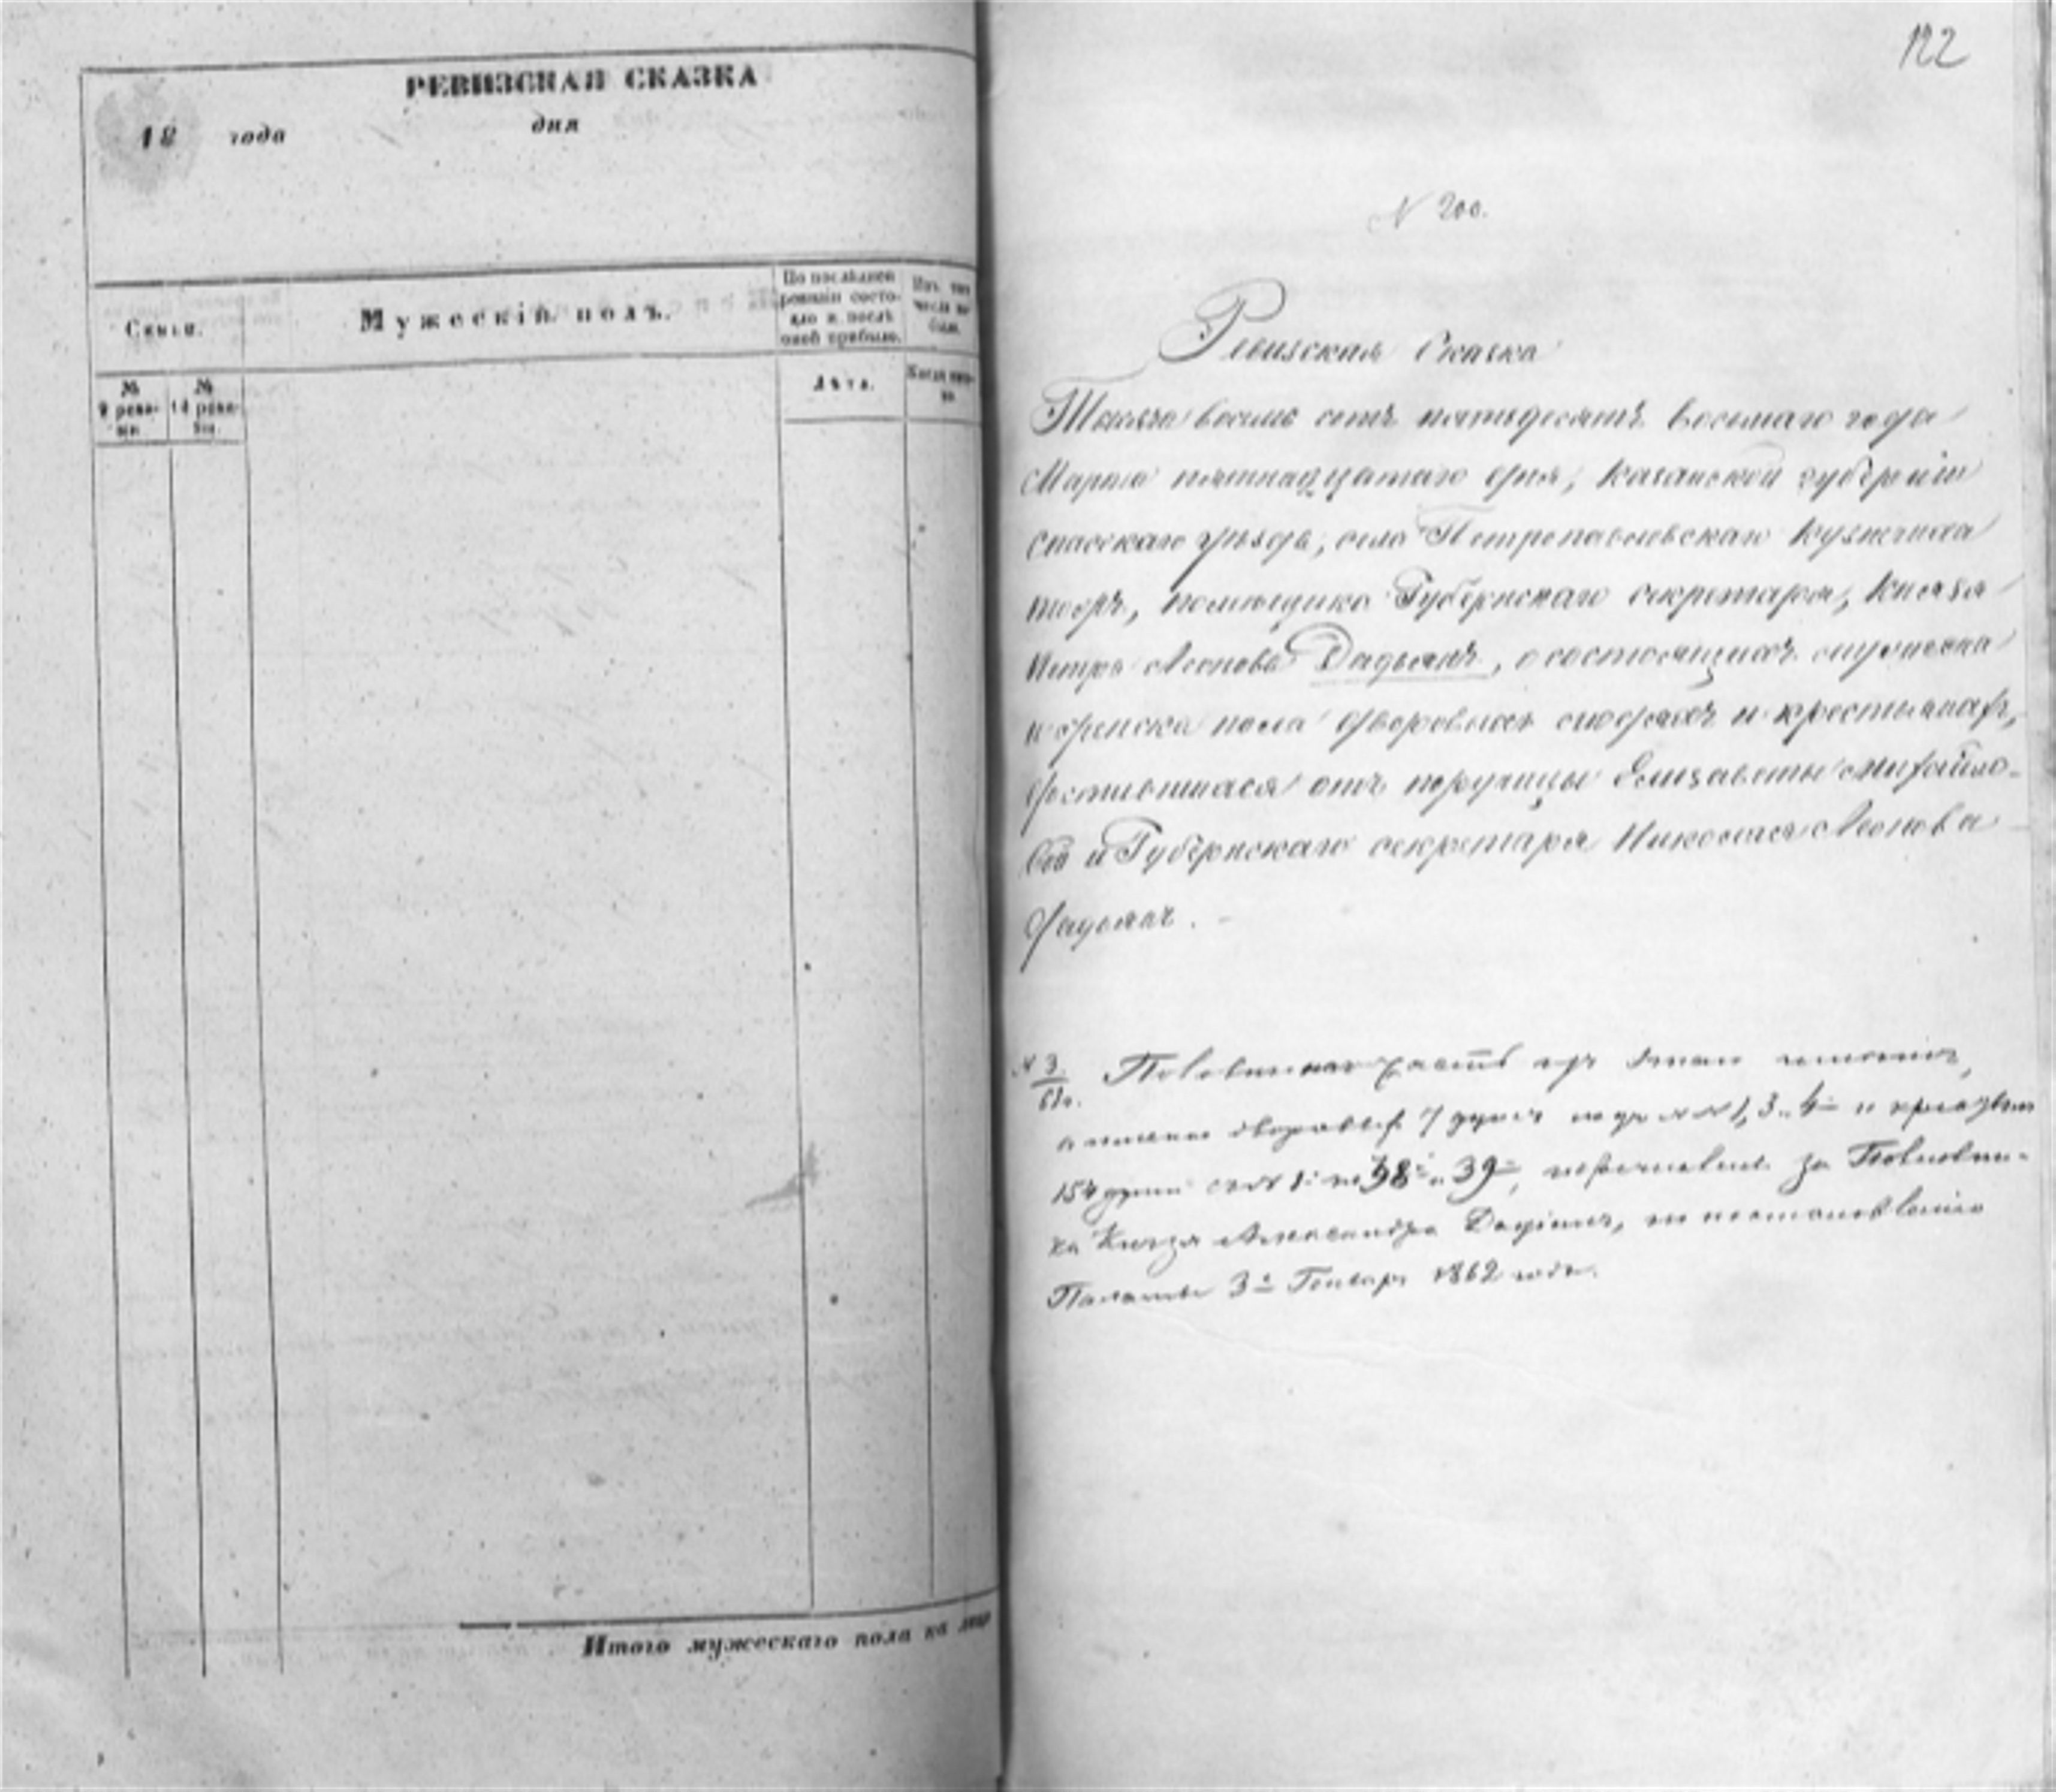 РЕВИЗСКАЯ СКАЗКА
18 года дня
Семьи.
Мужескій полъ.
По послѣдней
ревизіи состо-
яло и послѣ
оной прибыло.
Изъ того
числа вы-
было.
№
9 реви-
зіи.
№
10 реви-
зіи.
Лѣта.
Когда имен-
но
Итого мужескаго пола на лицо
122
N 200.
Ревизская Сказка
Тысяча восемь сотъ пятьдесятъ восьмаго года
Марта пятнадцатаго дня, Казанской губерніи
Спасскаго уѣзда, села Петропавловскаго Кузнечиха
тожъ, помѣщика Губернскаго секретаря, Князя
Петра Леонова Дадьянъ, о состоящихъ мужеска
и женска пола дворовыхъ людяхъ и крестьянахъ,
доставшихся отъ поручицы Елизаветы Михайло-
вой и Губернскаго секретаря Николая Леонова
Дадьянъ.
N 3
Половинная часть изъ этаго имѣнія,
а именно дворовыхъ 7 душъ подъ NN 1, 3 и 4 и крестьянъ
154 души съ N 1 по 38 и 39, перечислены за Полковни-
ка Князя Александра Дадіанъ, по постановленію
Палаты 3 Генваря 1862 года.